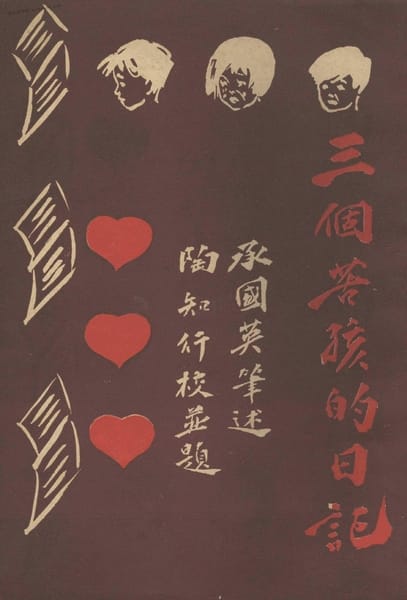 三個苦孩的日記
承國英筆述
陶知行校並題